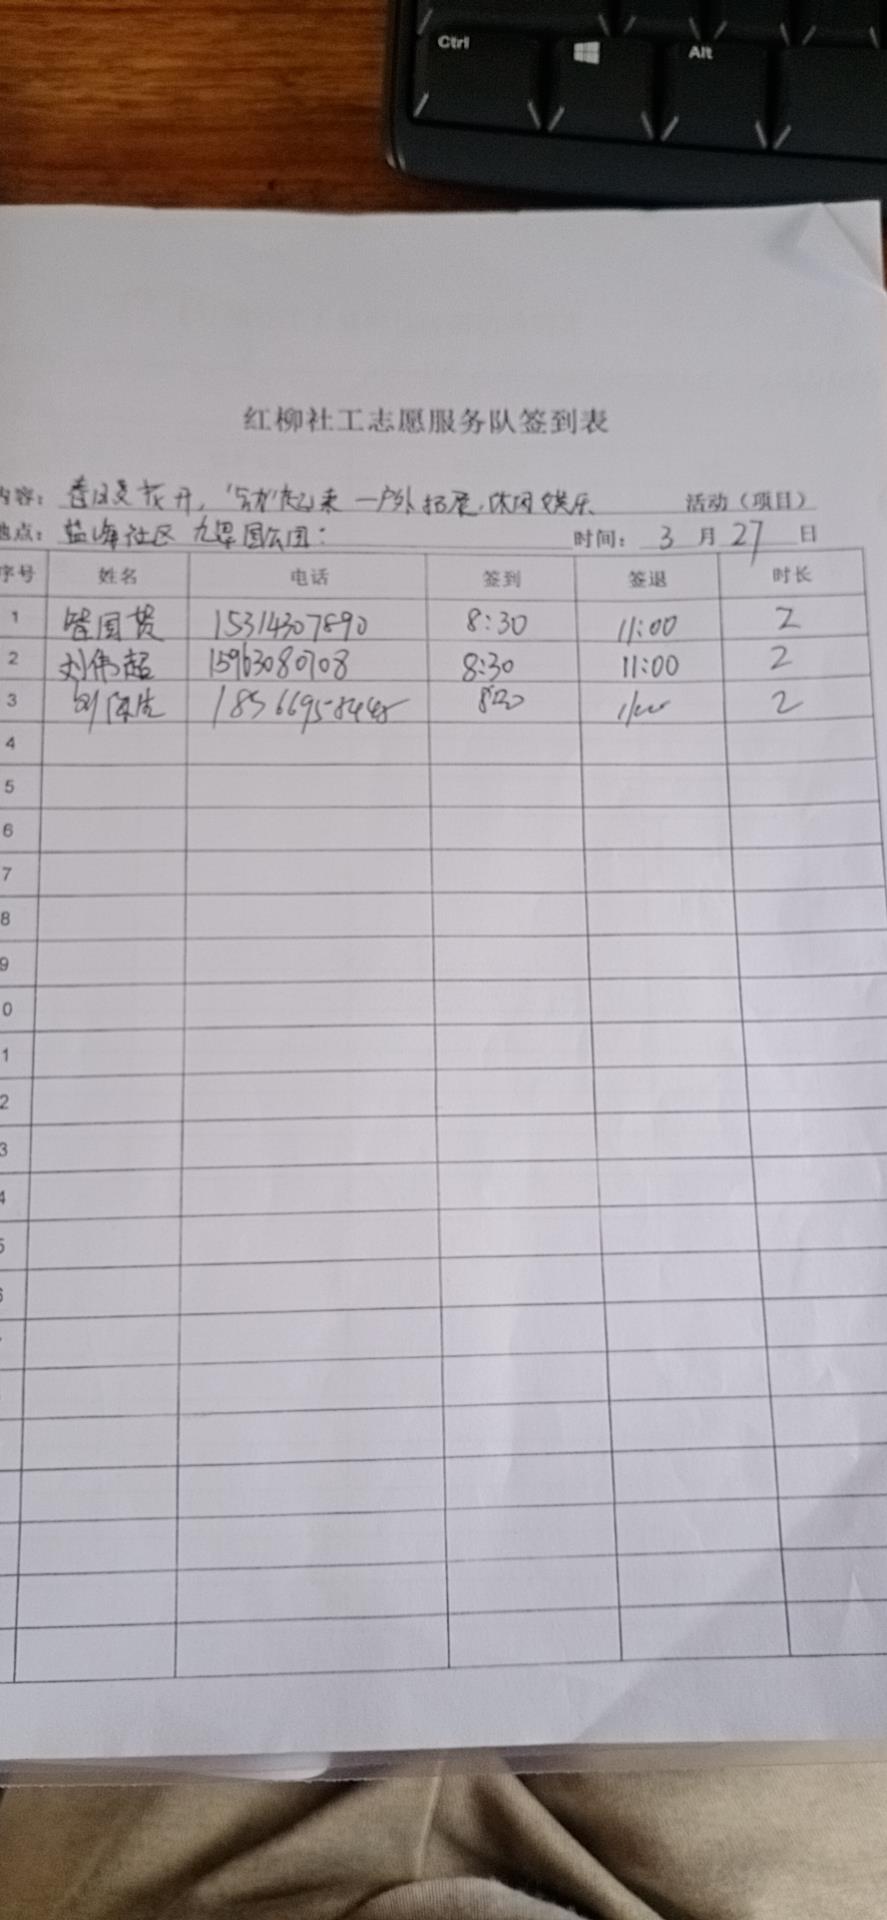 Ctrl
Alt
红柳社工志愿服务队签到表
内容：春暖花开，"动"起来一户外拓展、休闲娱乐 活动（项目）
地点：盐海社区 公园： 时间：3月27日
序号 姓名 电话 签到 签退 时长
1 国 15314307890 8:30 11:00 2
2 刘伟超 15963080708 8:30 11:00 2
3 刘 18566958448 8:30 11:00 2
4
5
6
7
8
9
0
1
2
3
4
5
6